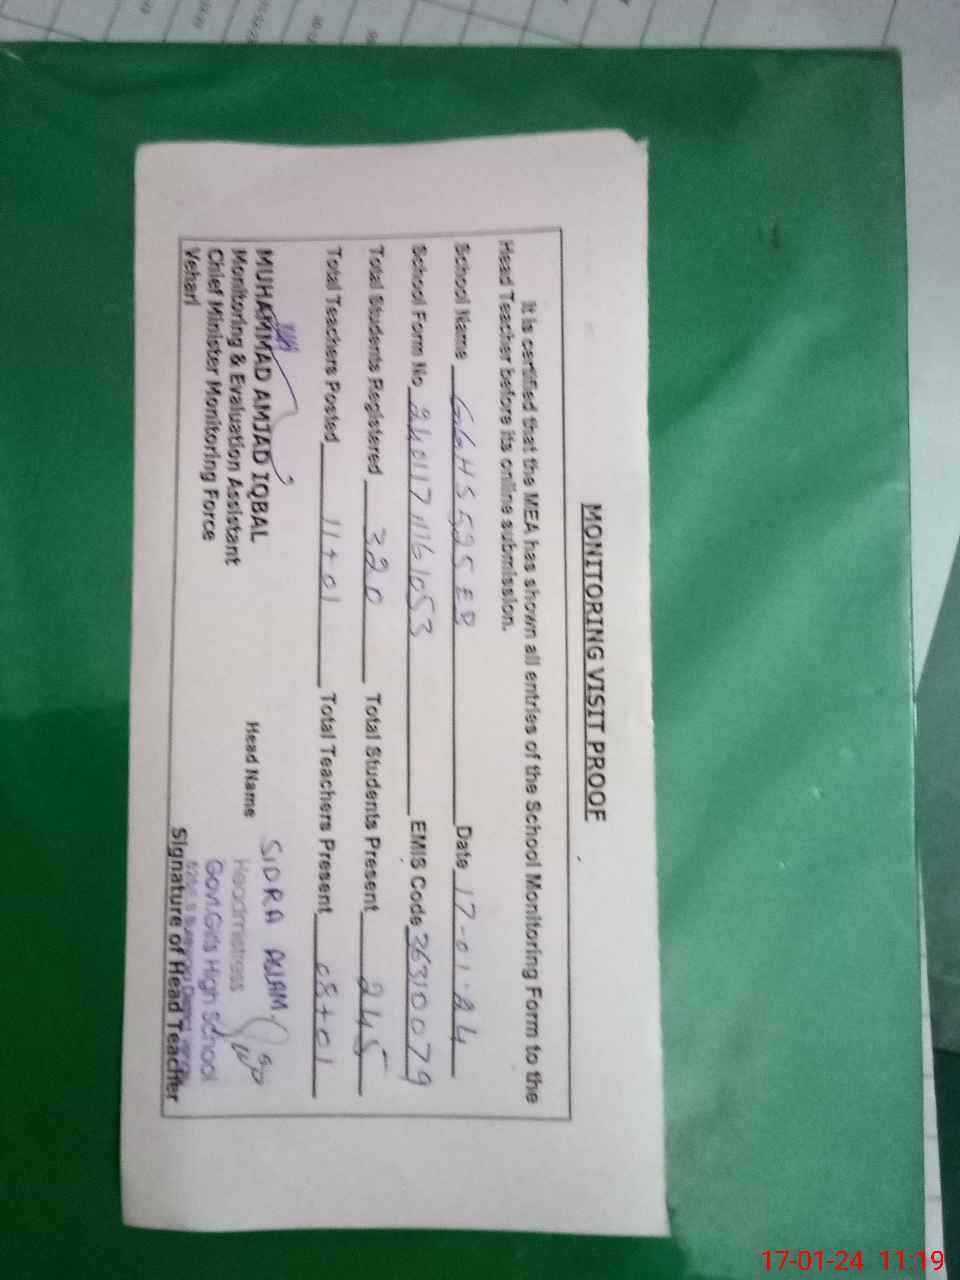 MONITORING VISIT PROOF
It is certified that the MEA has shown all entries of the School Monitoring Form to the
Head Teacher before its online submission.
School Name GGHS 525 EB Date 17-01-24
School Form No 24011711161053 EMIS Code 36310079
Total Students Registered 320 Total Students Present 245
Total Teachers Posted 11+01 Total Teachers Present 08+01
MUHAMMAD AMJAD IQBAL
Monitoring & Evaluation Assistant
Chief Minister Monitoring Force
Vehari
Head Name SIDRA ASLAM
Headmistress
Govt.Girls High School
Signature of Head Teacher
17-01-24 11:19